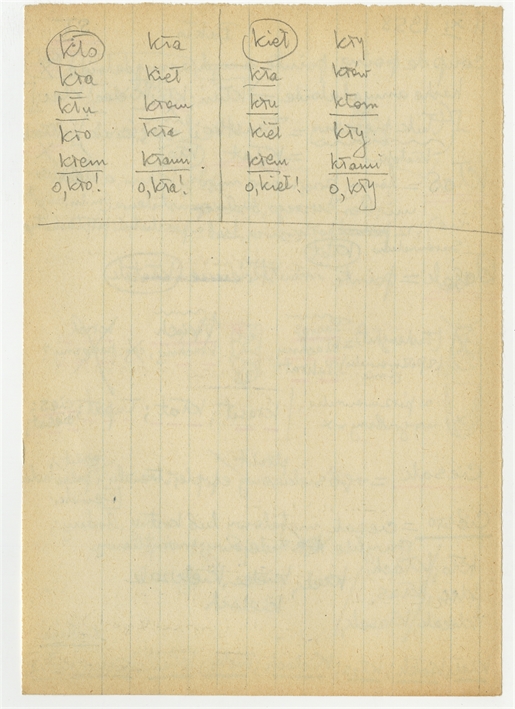 kło kła kieł kły
kła kieł kła kłów
kłu kłom kłu kłom
kło kła kieł kły
kłem kłami kłem kłami
o, kło! o, kła! o, kieł! o, kły